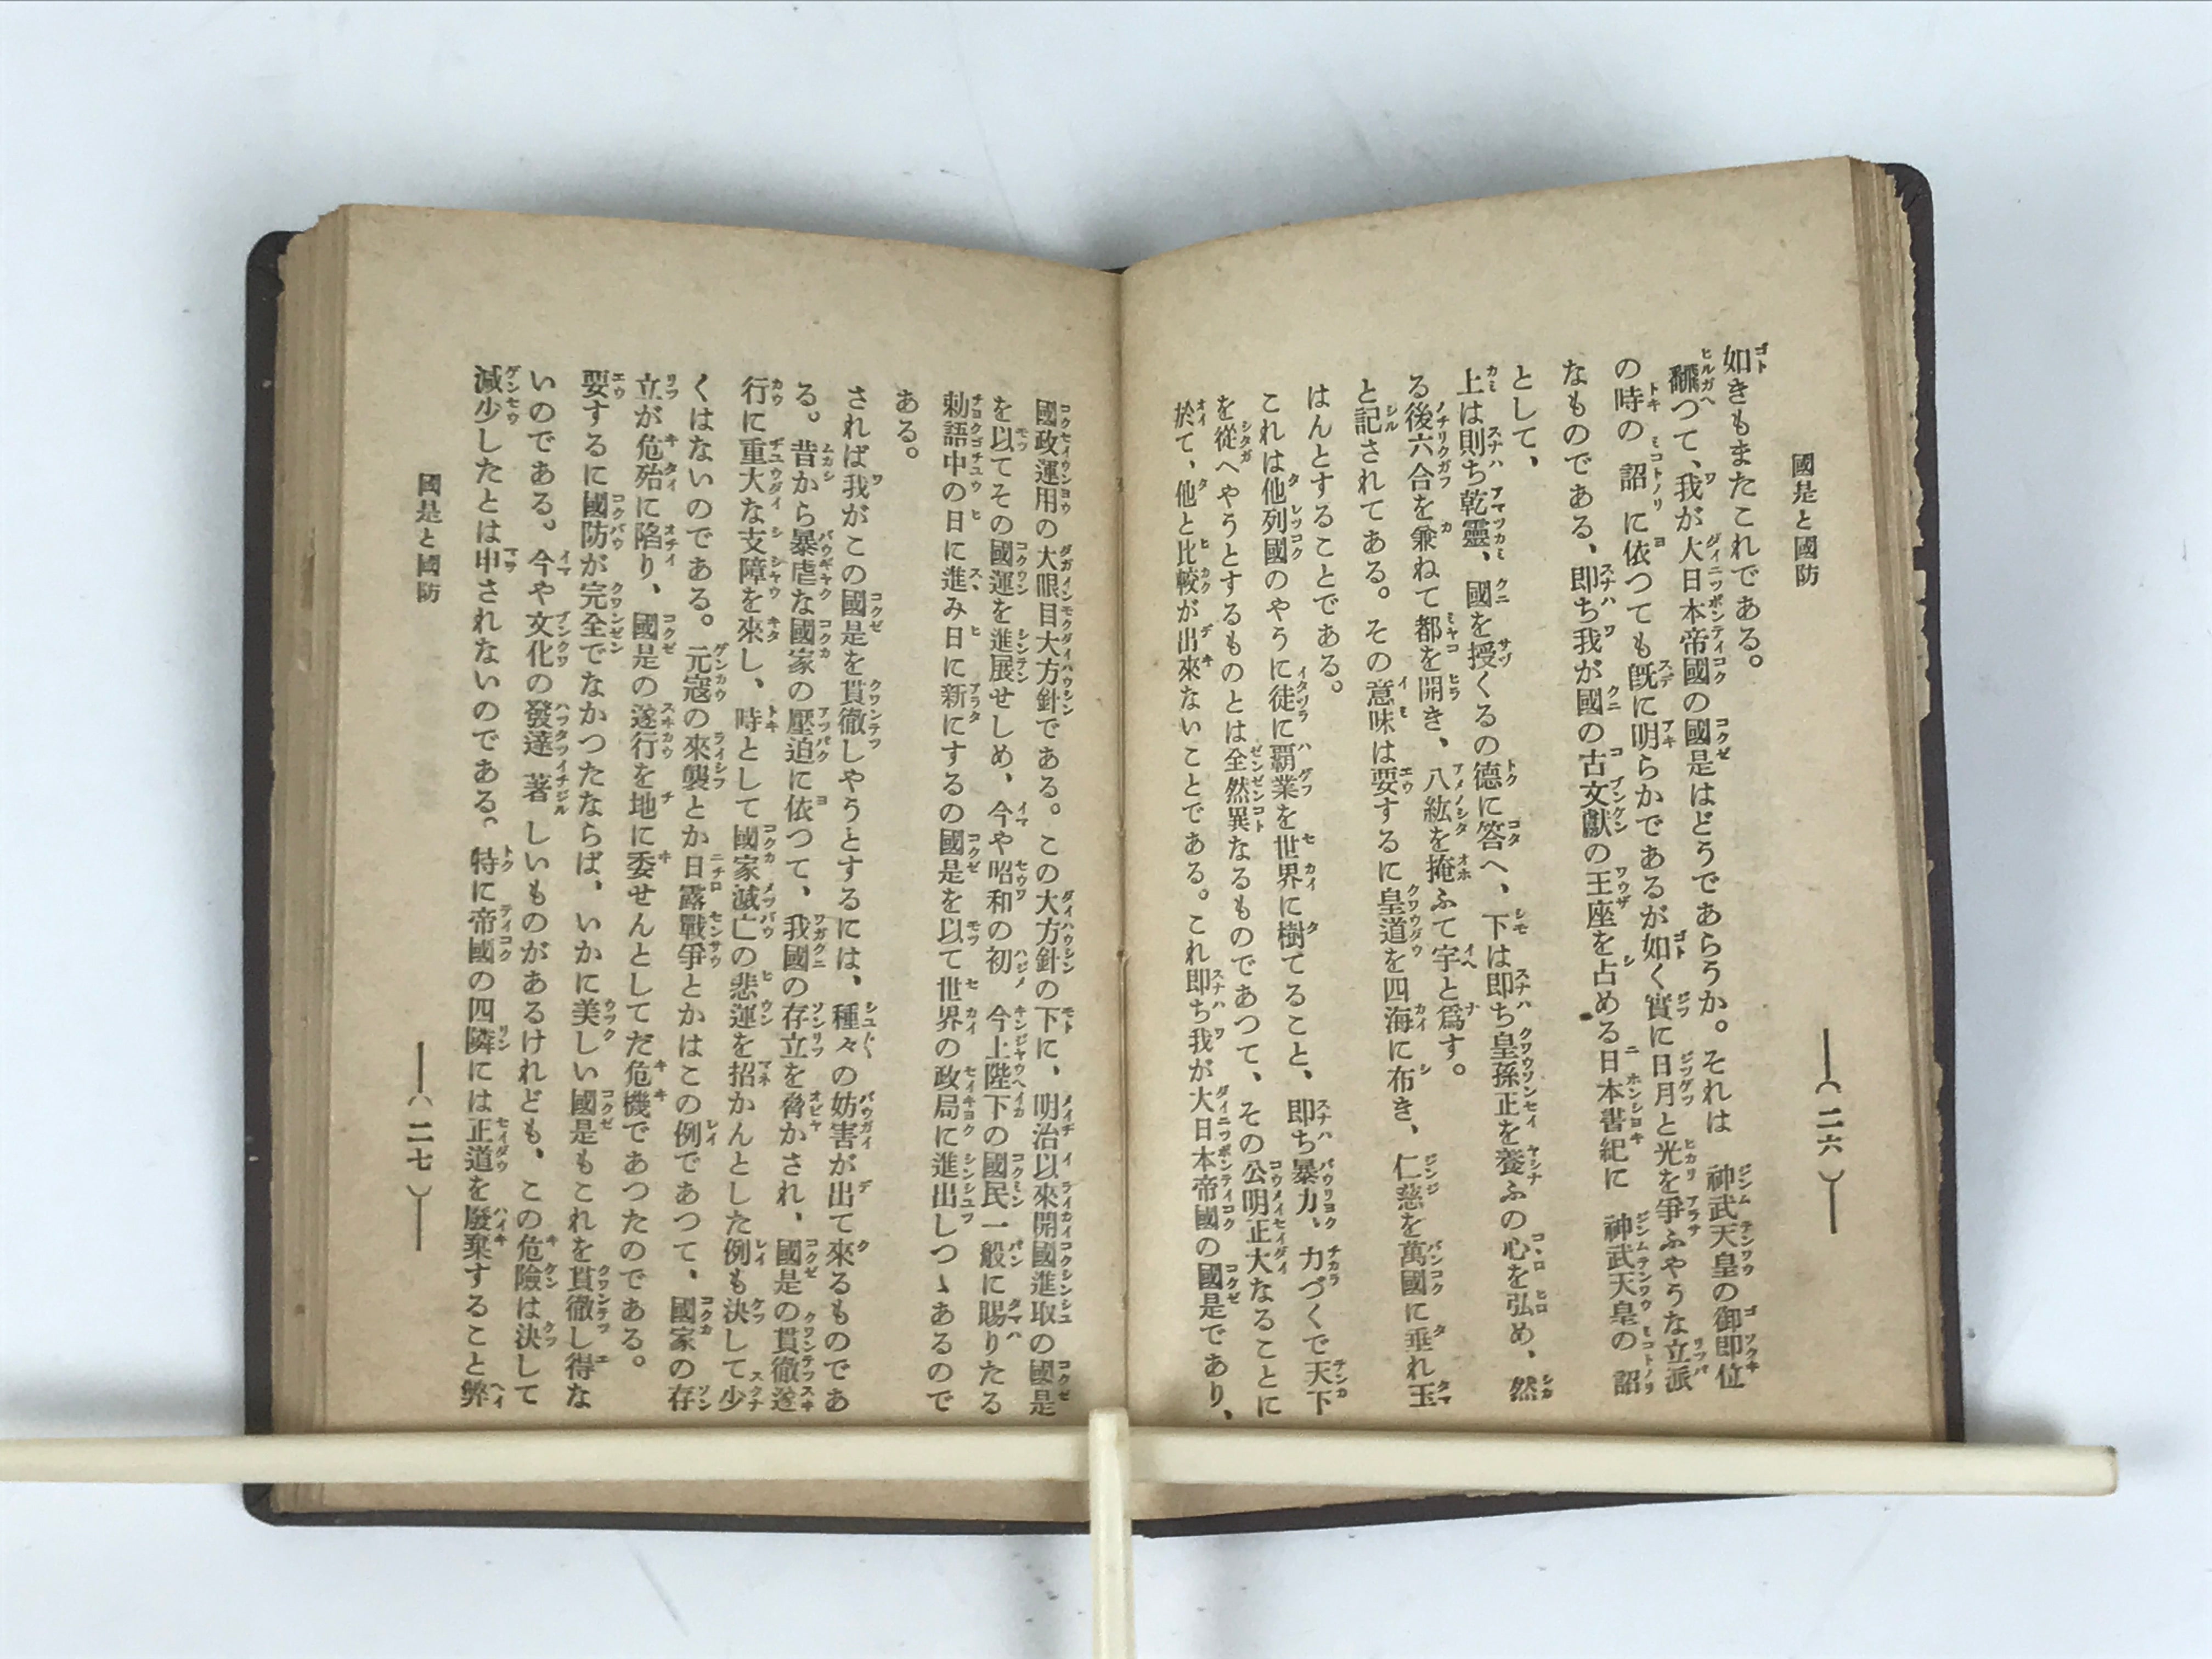 國是と國防
如きもまたこれである。
飜つて、我が大日本帝國の國是はどうであらうか。それは　神武天皇の御即位
の時の　詔に依つても旣に明らかであるが如く實に日月と光を爭ふやうな立派
なものである、即ち我が國の古文獻の王座を占める日本書紀に　神武天皇の　詔
として、
上は則ち乾靈、國を授くるの德に答へ、下は即ち皇孫正を養ふの心を弘め、然
る後六合を兼ねて都を開き、八紘を掩ふて宇と爲す。
と記されてある。その意味は要するに皇道を四海に布き、仁慈を萬國に垂れ玉
はんとすることである。
これは他列國のやうに徒に覇業を世界に樹てること、即ち暴力、力づくで天下
を從へやうとするものとは全然異なるものであつて、その公明正大なることに
於て、他と比較が出來ないことである。これ即ち我が大日本帝國の國是であり、
（二六）
國政運用の大眼目大方針である。この大方針の下に、明治以來開國進取の國是
を以てその國運を進展せしめ、今や昭和の初　今上陛下の國民一般に賜りたる
勅語中の日に進み日に新にするの國是を以て世界の政局に進出しつゝあるので
ある。
されば我がこの國是を貫徹しやうとするには、種々の妨害が出て來るものであ
る。昔から暴虐な國家の壓迫に依つて、我國の存立を脅かされ、國是の貫徹遂
行に重大な支障を來し、時として國家滅亡の悲運を招かんとした例も決して少
くはないのである。元寇の來襲とか日露戰爭とかはこの例であつて、國家の存
立が危殆に陷り、國是の遂行を地に委せんとしてだ危機であつたのである。
要するに國防が完全でなかつたならば、いかに美しい國是もこれを貫徹し得な
いのである。今や文化の發達著しいものがあるけれども、この危險は決して
減少したとは申されないのである。特に帝國の四隣には正道を廢棄すること弊
國是と國防
（二七）